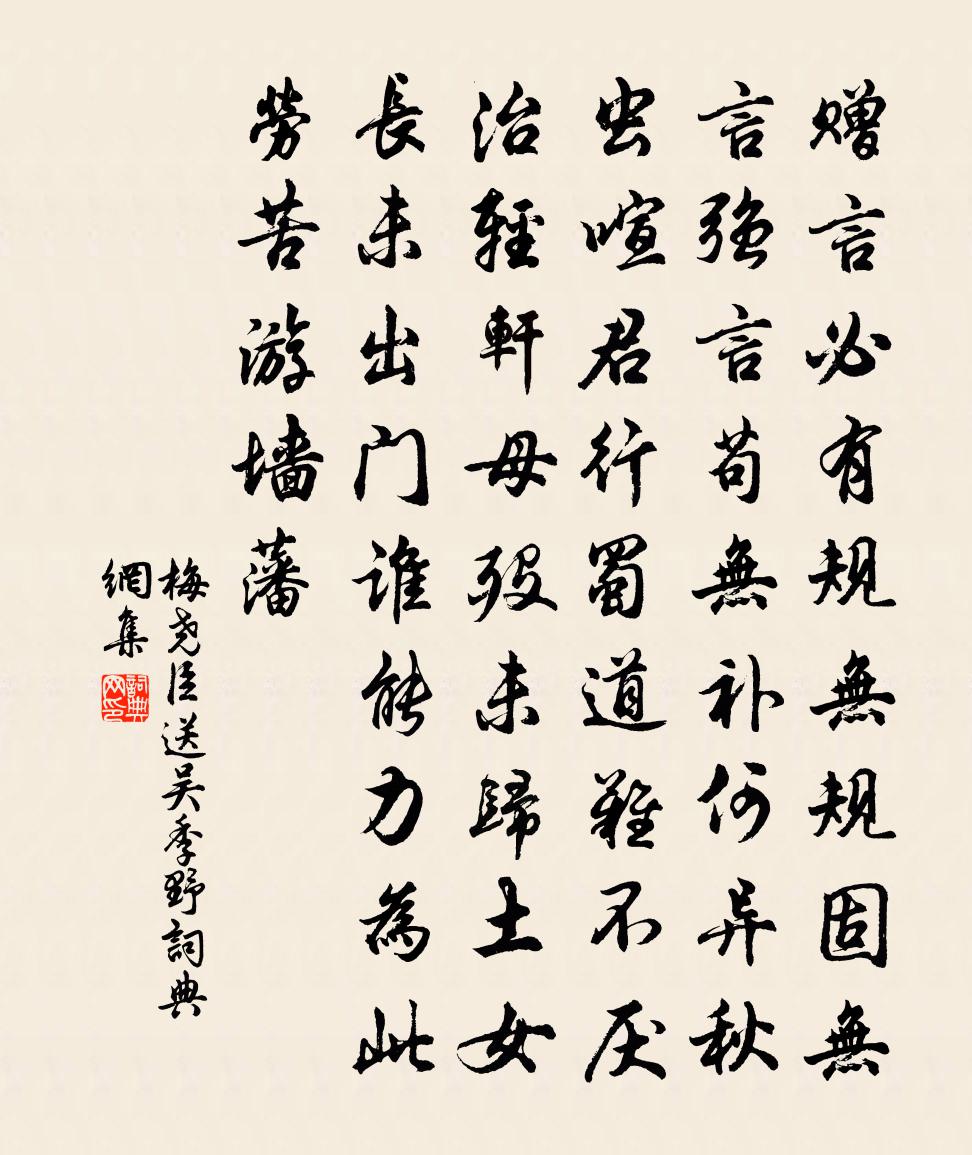 赠言必有规無规固無
言强言苟無补何异秋
虫喧君行蜀道難不厌
治輕軒母殁未歸土女
長未出门谁能力為此
勞苦游墙藩
梅尧臣送吴季野詞典
網集
詞典网印